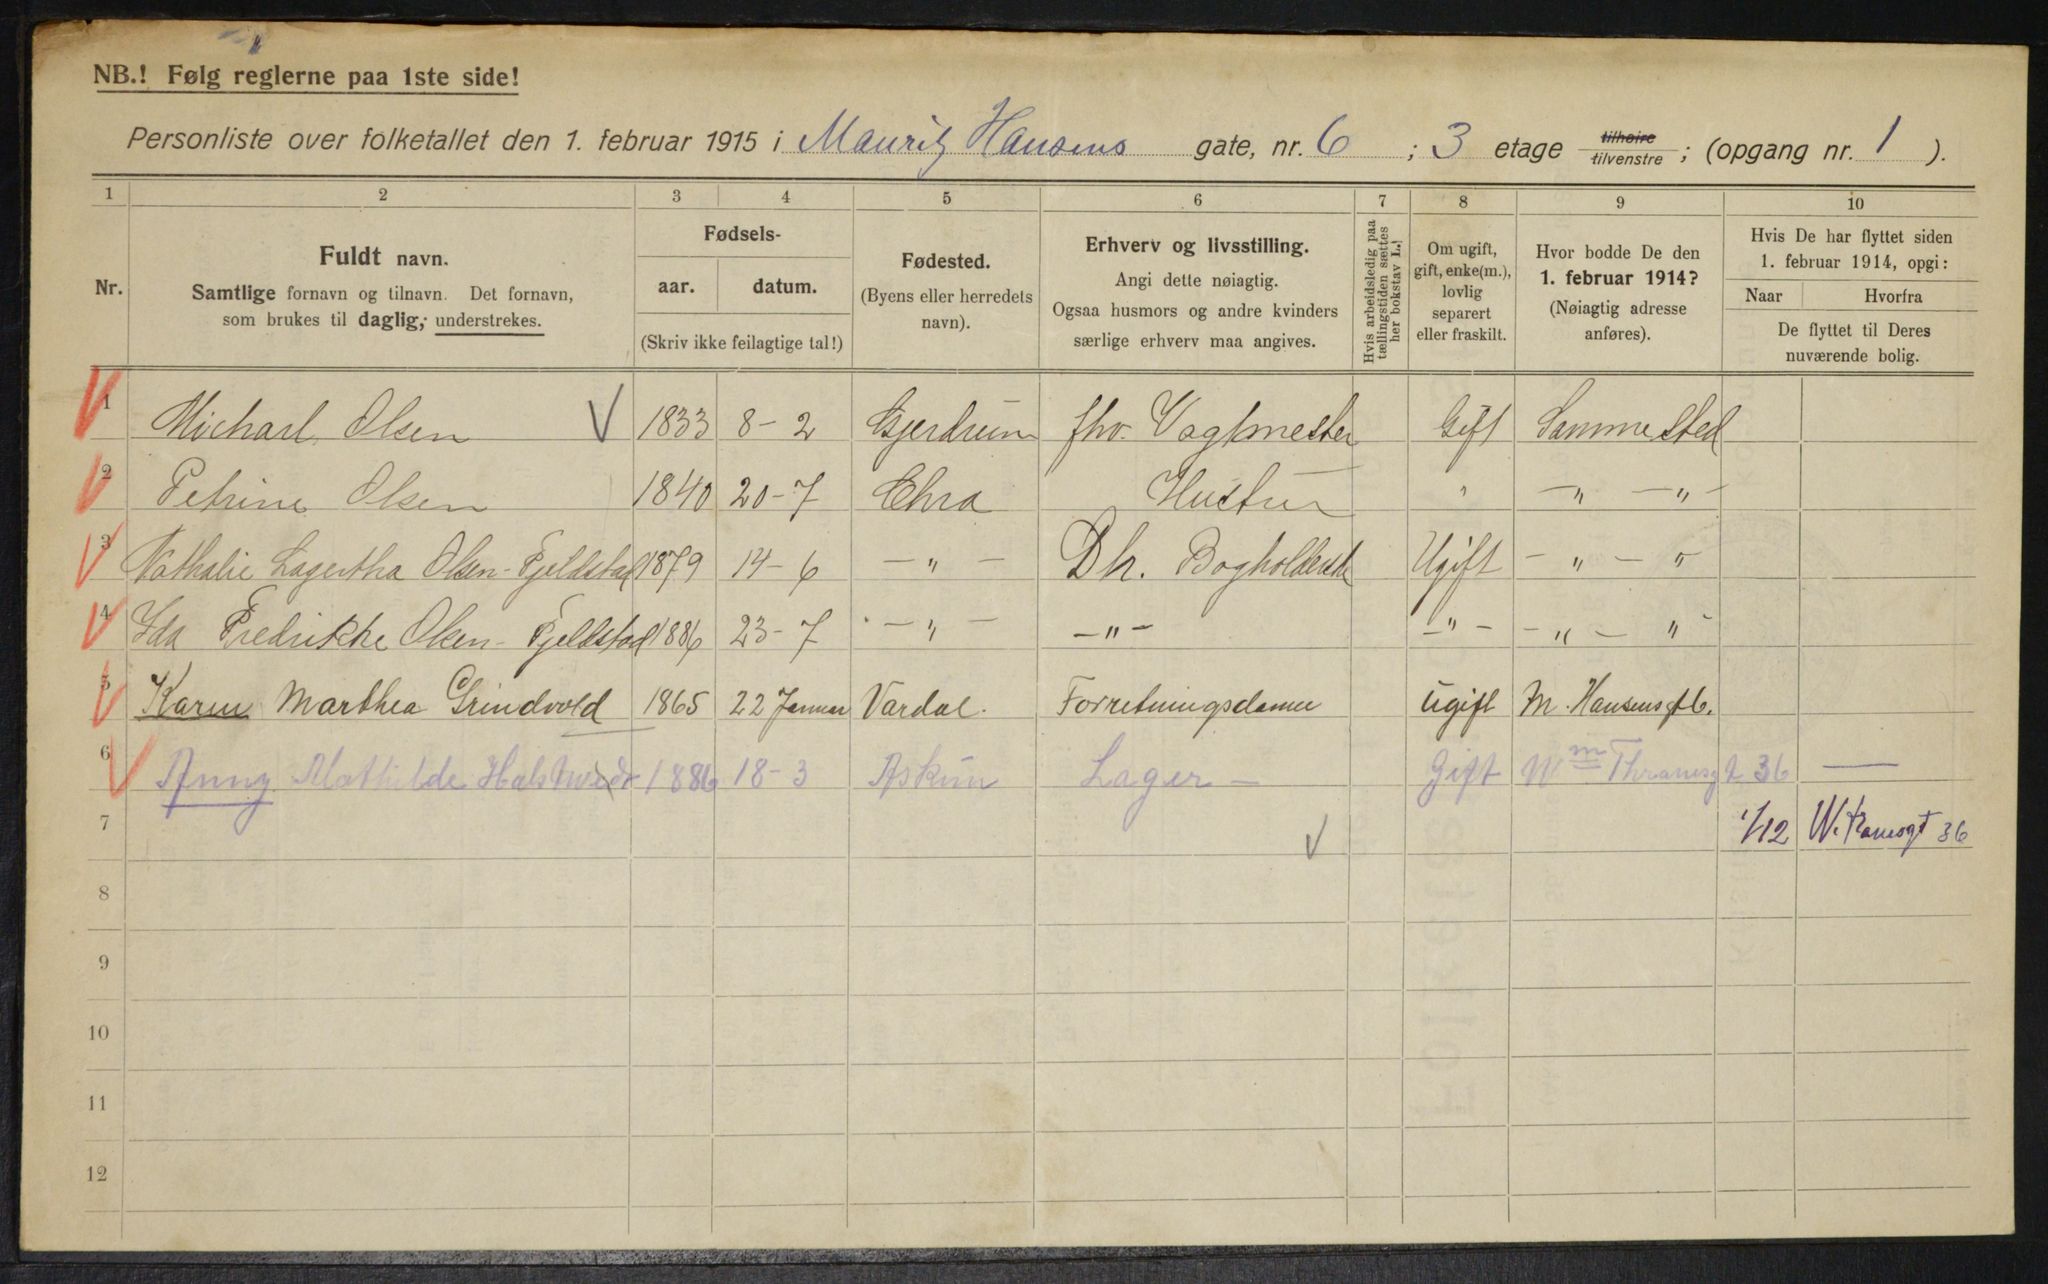 NB.! Følg reglerne paa 1ste side!
Personliste over folketallet den 1. februar 1915 i Mauritz Hansens gate, nr. 6 ; 3 etage tilhøire tilvenstre ; (opgang nr. 1 ).
1 2 3 4 5 6 7 8 9 10
Nr.
Fuldt navn.
Samtlige fornavn og tilnavn. Det fornavn,
som brukes til daglig, understrekes.
Fødsels-
aar. datum.
(Skriv ikke feilagtige tal!)
Fødested.
(Byens eller herredets
navn).
Erhverv og livsstilling.
Angi dette nøiagtig.
Ogsaa husmors og andre kvinders
særlige erhverv maa angives.
Hvis arbeidsledig paa
tællingstiden sættes
her bokstav L.
Om ugift,
gift, enke(m.),
lovlig
separert
eller fraskilt.
Hvor bodde De den
1. februar 1914?
(Nøiagtig adresse
anføres).
Hvis De har flyttet siden
1. februar 1914, opgi:
Naar Hvorfra
De flyttet til Deres
nuværende bolig.
1 Michael Olsen 1833 8-2 Gjerdrum fhv. Vagtmester Gift Samme sted
2 Petrine Olsen 1840 20-7 Chra Hustru " -"- -"-
3 Nathalie Lagertha Olsen-Fjeldstad 1879 14-6 -"- Dh. Ugift -"- "
4 Ida Fredrikke Olsen-Fjeldstad 1886 23-7 -"- -"- -"- -"- "
5 Karen Marthea Grindvold 1865 22 Januar Vardal. Forretningsdame ugift M. Hansens gt 6.
6 Anny Mathilde 1886 18-3 Askim Lager - Gift Wm Thranesgt 36 —
7 1/12 W. Tranesgt 36
8
9
10
11
12